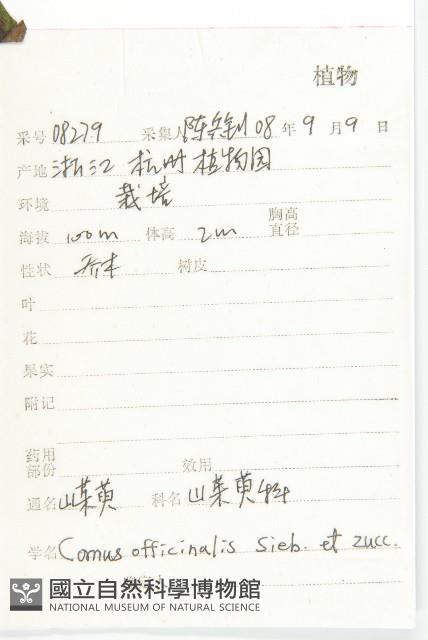 植物
采号 08279 采集人 陈 钊 08 年 9 月 9 日
产地 浙江 杭州 植物园
环境 栽培
胸高
海拔 100m 体高 2m 直径
性状 乔木 树皮
叶
花
果实
附记
药用
部份 效用
通名 山茱萸 科名 山茱萸科
学名 Cornus officinalis Sieb. et Zucc.
國立自然科學博物館
NATIONAL MUSEUM OF NATURAL SCIENCE